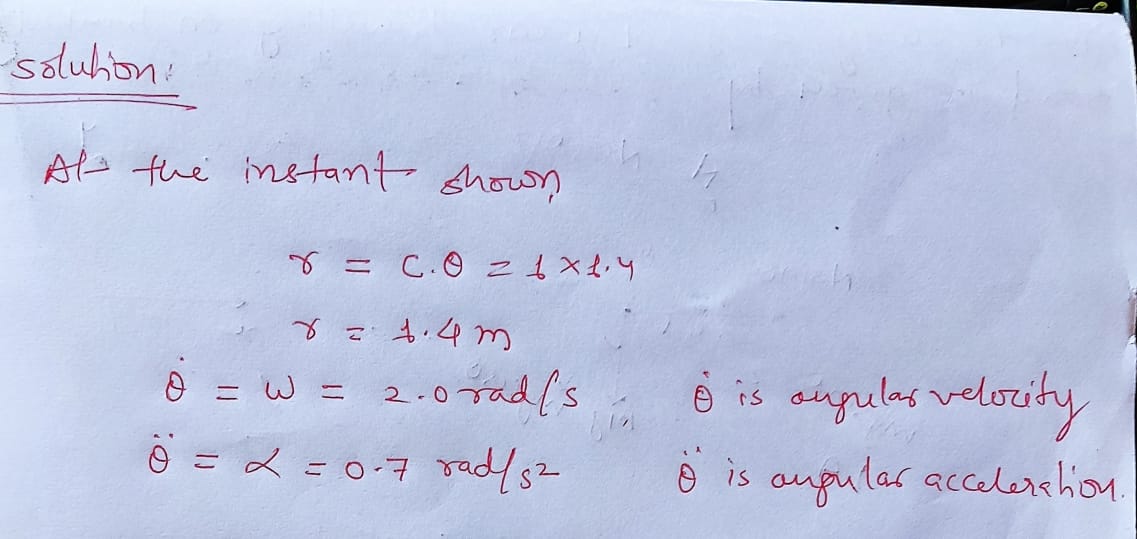 solution:
At the instant shown,
r = C.θ = 1 × 1.4
r = 1.4 m
θ̇ = ω = 2.0 rad/s θ̇ is angular velocity
θ̈ = α = 0.7 rad/s2 θ̈ is angular acceleration.